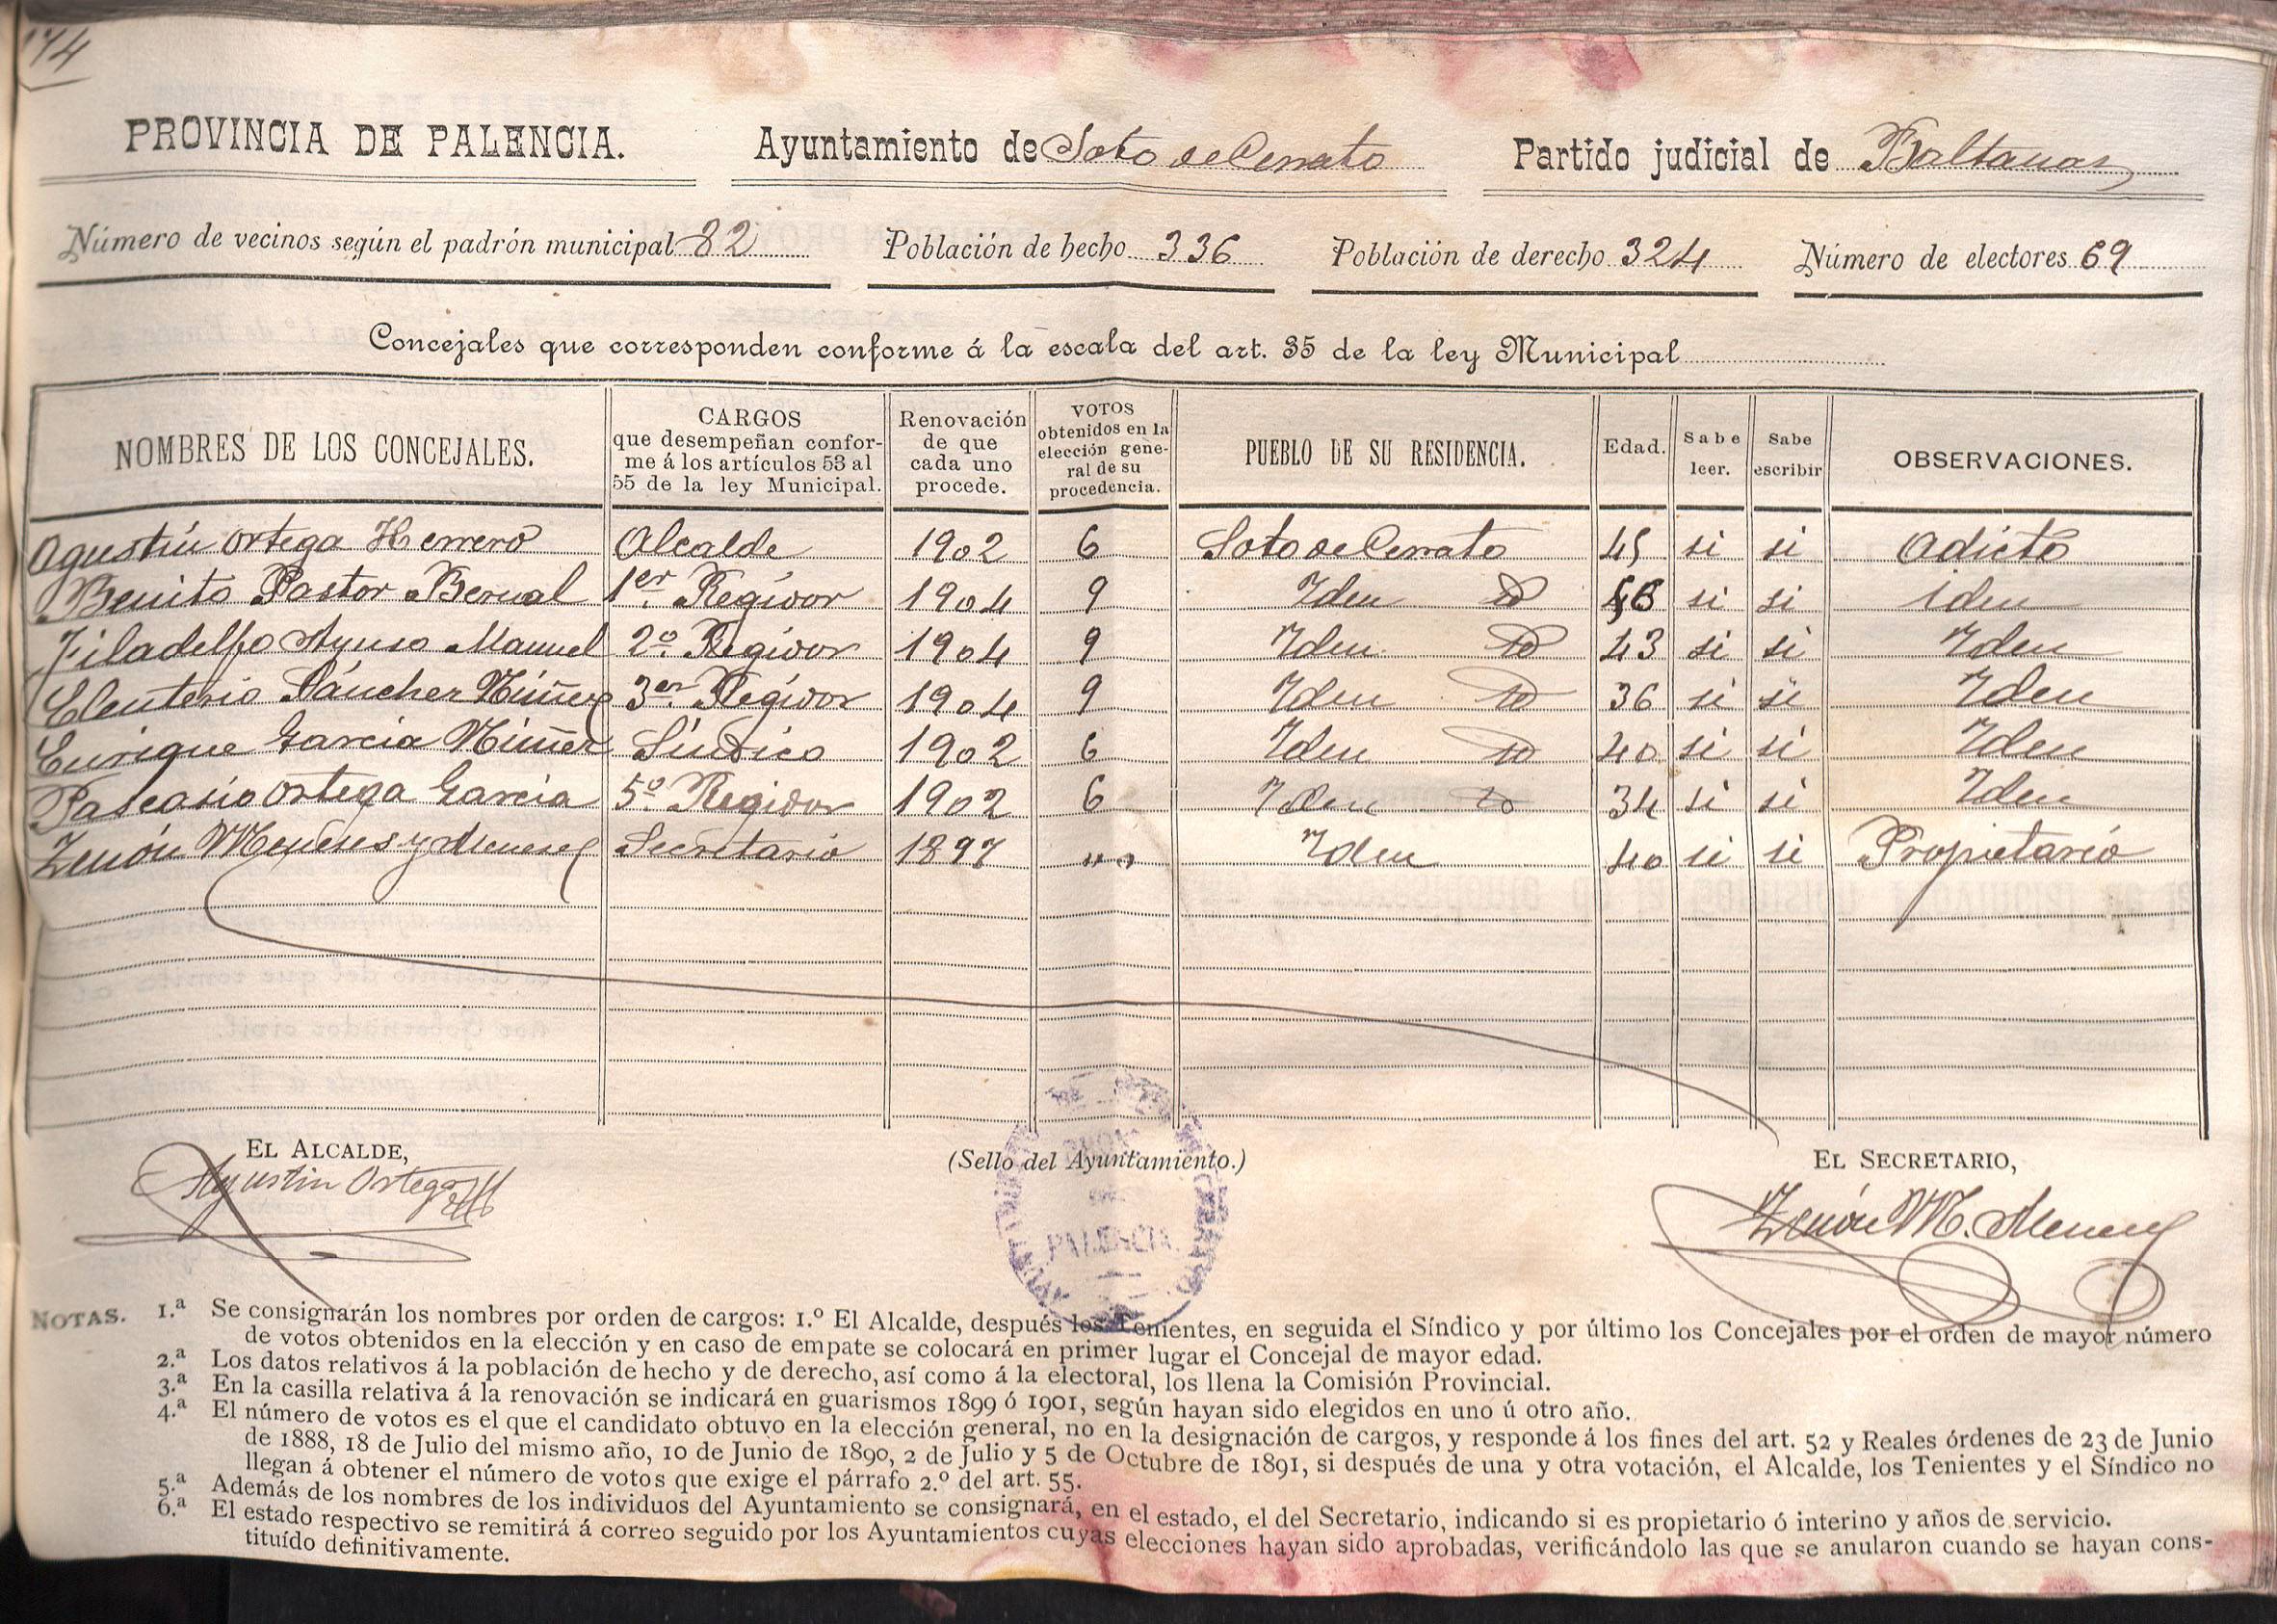 174
PROVINCIA DE PALENCIA. Ayuntamiento de Soto de Cerrato Partido judicial de Baltanas
Número de vecinos según el padrón municipal 82 Población de hecho 336 Población de derecho 324 Número de electores 69
Concejales que corresponden conforme á la escala del art. 35 de la ley Municipal
NOMBRES DE LOS CONCEJALES. CARGOS que desempeñan conforme á los artículos 53 al 55 de la ley Municipal. Renovación de que cada uno procede. VOTOS obtenidos en la elección general de su procedencia. PUEBLO DE SU RESIDENCIA. Edad. Sabe leer. Sabe escribir OBSERVACIONES.
Agustín Ortega Herrero Alcalde 1902 6 Soto de Cerrato 45 si si Adicto
Benito Pastor Bernal 1er. Regidor 1904 9 Iden id si si iden
Filadelfo Ayuso Manuel 2º. Regidor 1904 9 Iden id 43 si si Iden
Eleuterio Sáncher Núñez 3er. Regidor 1904 9 Iden id 36 si si Iden
Enrique García Núñez Síndico 1902 6 Iden id 40 si si Iden
Pascasio Ortega García 5º. Regidor 1902 6 Iden id 34 si si Iden
Zenón Meneses y Meneses Secretario 1897 " " Iden 40 si si Propietario
EL ALCALDE, (Sello del Ayuntamiento.) EL SECRETARIO,
Agustin Ortega Zenón M. Meneses
PALENCIA
NOTAS. 1.ª Se consignarán los nombres por orden de cargos: 1.º El Alcalde, después los Tenientes, en seguida el Síndico y por último los Concejales por el orden de mayor número
de votos obtenidos en la elección y en caso de empate se colocará en primer lugar el Concejal de mayor edad.
2.ª Los datos relativos á la población de hecho y de derecho, así como á la electoral, los llena la Comisión Provincial.
3.ª En la casilla relativa á la renovación se indicará en guarismos 1899 ó 1901, según hayan sido elegidos en uno ú otro año.
4.ª El número de votos es el que el candidato obtuvo en la elección general, no en la designación de cargos, y responde á los fines del art. 52 y Reales órdenes de 23 de Junio
de 1888, 18 de Julio del mismo año, 10 de Junio de 1890, 2 de Julio y 5 de Octubre de 1891, si después de una y otra votación, el Alcalde, los Tenientes y el Síndico no
llegan á obtener el número de votos que exige el párrafo 2.º del art. 55.
5.ª Además de los nombres de los individuos del Ayuntamiento se consignará, en el estado, el del Secretario, indicando si es propietario ó interino y años de servicio.
6.ª El estado respectivo se remitirá á correo seguido por los Ayuntamientos cuyas elecciones hayan sido aprobadas, verificándolo las que se anularon cuando se hayan cons-
tituído definitivamente.